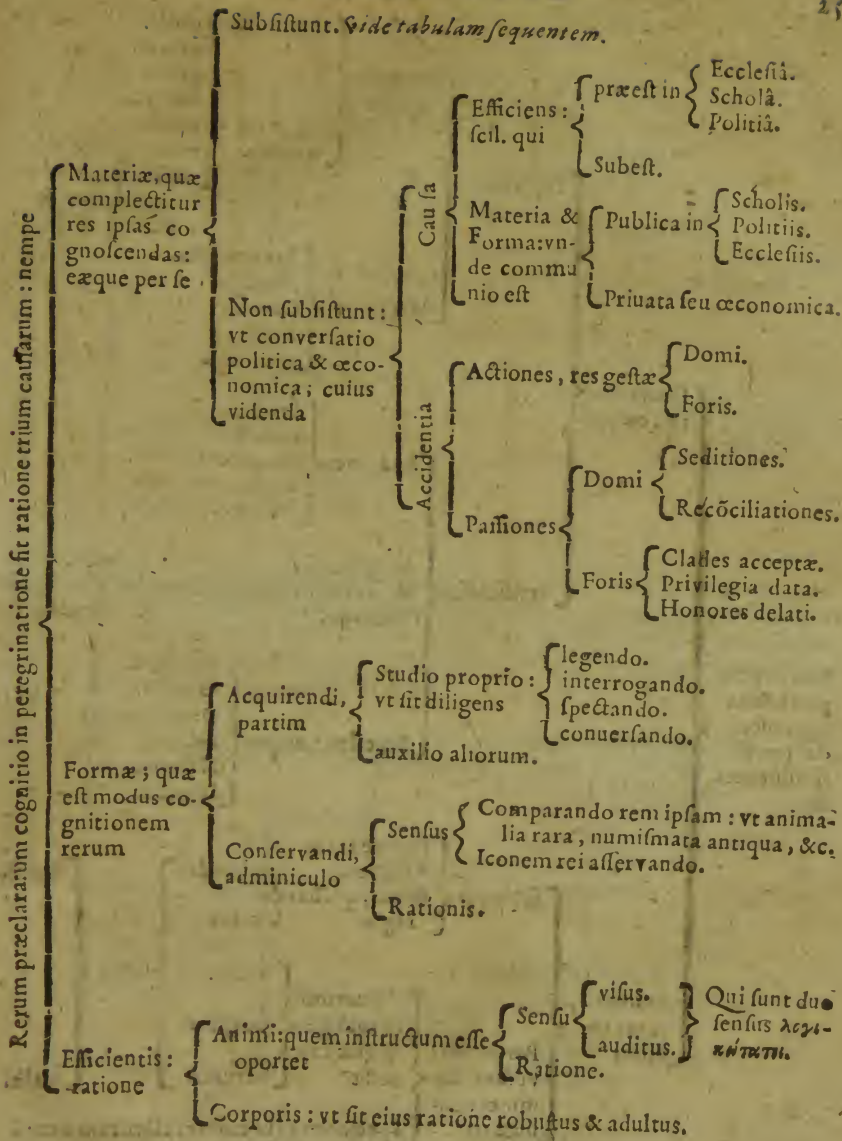 25
Subsistunt. Vide tabulam sequentem.
Rerum præclararum cognitio in peregrinatione fit ratione trium caussarum : nempe
Materiæ, quæ
complectitur
res ipsas co
gnoscendas:
eæque per se
Non subsistunt:
vt conversatio
politica & œco-
nomica; cuius
videnda
Causa
Efficiens:
scil. qui
præest in
Ecclesiâ.
Scholâ.
Politiâ.
Subest.
Materia &
Forma:vn-
de commu
nio est
Publica in
Scholis.
Politiis.
Ecclesiis.
Priuata seu œconomica.
Accidentia
Actiones, res gestæ
Domi.
Foris.
Passiones
Domi
Seditiones.
Recõciliationes.
Foris
Clades acceptæ.
Privilegia data.
Honores delati.
Formæ ; quæ
est modus co-
gnitionem
rerum
Acquirendi,
partim
Studio proprio :
vt sit diligens
legendo.
interrogando.
spectando.
conuersando.
auxilio aliorum.
Conservandi,
adminiculo
Sensus
Comparando rem ipsam : vt anima-
lia rara, numismata antiqua, &c.
Iconem rei asservando.
Rationis.
Efficientis :
ratione
Animi:quem instructum esse
oportet
Sensu
visus.
auditus.
Qui sunt duo
sensus λογι-
κώτατοι.
Ratione.
Corporis : vt sit eius ratione robustus & adultus.